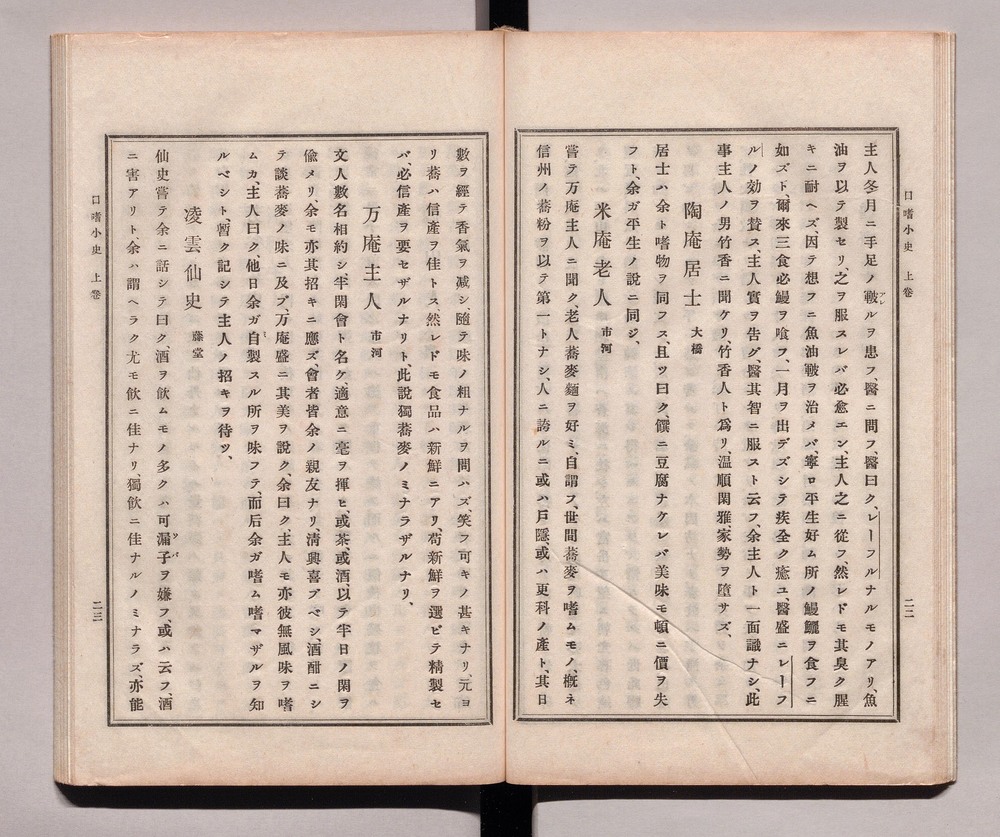 口嗜小史 上卷
二二
主人冬月ニ手足ノ皸ルヲ患フ、醫ニ問フ、醫曰ク、レーフルナルモノアリ、魚
油ヲ以テ製セリ、之ヲ服スレバ必愈エン、主人之ニ從フ、然レドモ其臭ク腥
キニ耐ヘズ、因テ想フニ魚油皸ヲ治メバ、寧ロ平生好ム所ノ鰻鱺ヲ食フニ
如ズト、爾來三食必鰻ヲ喰フ、一月ヲ出デズシテ疾全ク癒ユ、醫盛ニレーフ
ルノ効ヲ賛ス、主人實ヲ告グ、醫其智ニ服スト云フ、余主人ト一面識ナシ、此
事主人ノ男竹香ニ聞ケリ、竹香人ト爲リ、温順閑雅、家勢ヲ墮サズ、
陶庵居士 大橋
居士ハ余ト嗜物ヲ同フス、且ツ曰ク、饌ニ豆腐ナケレバ美味モ頓ニ價ヲ失
フト、余ガ平生ノ說ニ同ジ、
米庵老人 市河
嘗テ万庵主人ニ聞ク、老人蕎麥麵ヲ好ミ、自謂フ、世間蕎麥ヲ嗜ムモノ、槪ネ
信州ノ蕎粉ヲ以テ第一トナシ、人ニ誇ルニ或ハ戸隱、或ハ更科ノ產ト、其日
數ヲ經テ香氣ヲ减シ隨テ味ノ粗ナルヲ問ハズ、笑フ可キノ甚キナリ、元ヨ
リ蕎ハ信產ヲ佳トス、然レドモ食品ハ新鮮ニアリ、苟新鮮ヲ選ビテ精製セ
バ、必信產ヲ要セザルナリト、此說獨蕎麥ノミナラザルナリ、
万庵主人 市河
文人數名相約シ半閑會ト名ケ、適意ニ毫ヲ揮ヒ、或茶、或酒、以テ半日ノ閑ヲ
偸メリ、余モ亦其招キニ應ズ、會者皆余ノ親友ナリ、清興喜ブベシ、酒酣ニシ
テ談蕎麥ノ味ニ及ブ、万庵盛ニ其美ヲ說ク、余曰ク、主人モ亦彼無風味ヲ嗜
ムカ、主人曰ク、他日余ガ自製スル所ヲ味フテ、而后余ガ嗜ム嗜マザルヲ知
ルベシト、暫ク記シテ主人ノ招キヲ待ツ、
凌雲仙史 藤堂
仙史嘗テ余ニ話シテ曰ク、酒ヲ飮ムモノ多クハ可漏子ヲ嫌フ、或ハ云フ、酒
ニ害アリト、余ハ謂ヘラク尤モ飮ニ佳ナリ、獨飮ニ佳ナルノミナラズ、亦能
口嗜小史 上卷
二三